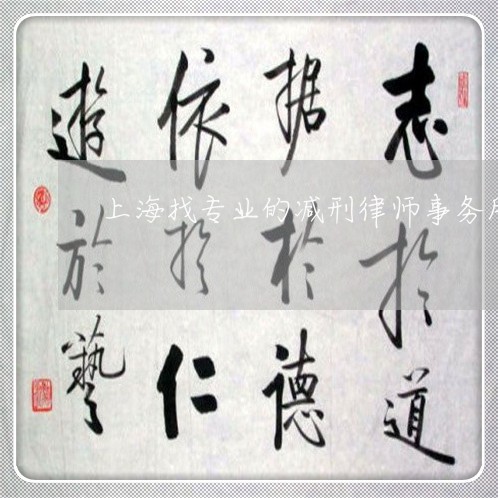 志於道
据於德
依於仁
遊於藝
上海找专业的减刑律师事务